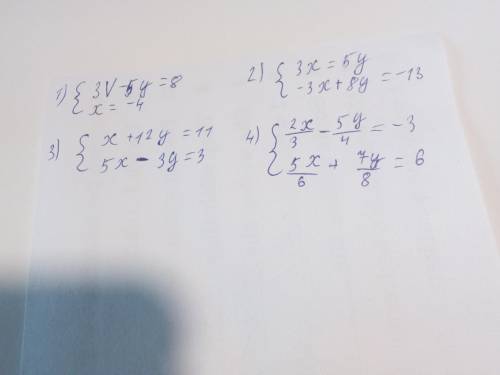 1) { 3V - 5y = 8
x = -4
2) { 3x = 5y
-3x + 8y = -13
3) { x + 12y = 11
5x - 3y = 3
4) { 2x/3 - 5y/4 = -3
5x/6 + 7y/8 = 6